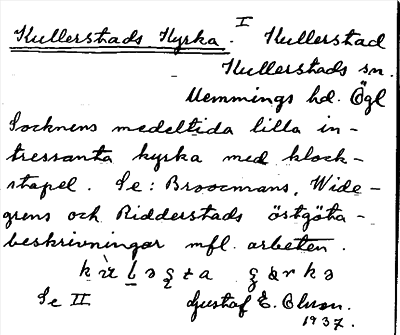 Kullerstads Kyrka. I Kullerstad
Kullerstads sn.
Memmings hd. Ögl
Socknens medeltida lilla in-
tressanta kyrka med klock-
stapel. Se: Broocmans, Wide-
grens och Ridderstads östgöta-
beskrivningar mfl. arbeten.
Se II Gustaf E. Olsson.
1937.